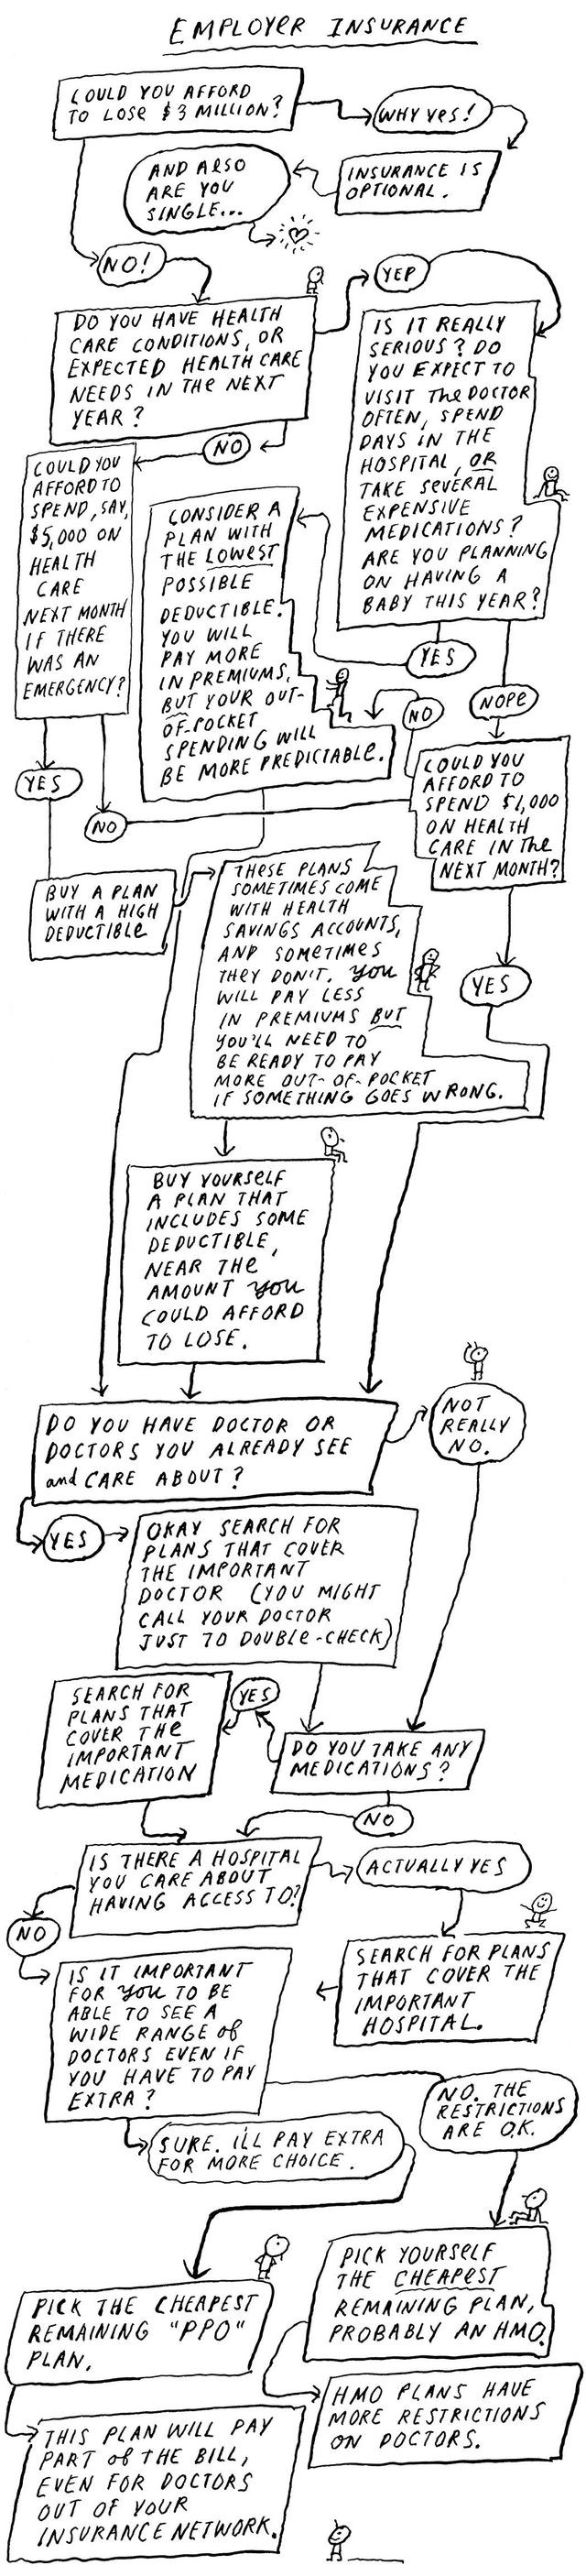 EMPLOYER INSURANCE
COULD YOU AFFORD
TO LOSE $3 MILLION?
WHY YES!
INSURANCE IS
OPTIONAL.
AND ALSO
ARE YOU
SINGLE...
NO!
DO YOU HAVE HEALTH
CARE CONDITIONS, OR
EXPECTED HEALTH CARE
NEEDS IN THE NEXT
YEAR?
YEP
IS IT REALLY
SERIOUS? DO
YOU EXPECT TO
VISIT THE DOCTOR
OFTEN, SPEND
DAYS IN THE
HOSPITAL, OR
TAKE SEVERAL
EXPENSIVE
MEDICATIONS?
ARE YOU PLANNING
ON HAVING A
BABY THIS YEAR?
NO
COULD YOU
AFFORD TO
SPEND, SAY,
$5,000 ON
HEALTH
CARE
NEXT MONTH
IF THERE
WAS AN
EMERGENCY?
CONSIDER A
PLAN WITH
THE LOWEST
POSSIBLE
DEDUCTIBLE.
YOU WILL
PAY MORE
IN PREMIUMS,
BUT YOUR OUT-
OF-POCKET
SPENDING WILL
BE MORE PREDICTABLE.
YES
NOPE
NO
COULD YOU
AFFORD TO
SPEND $1,000
ON HEALTH
CARE IN THE
NEXT MONTH?
YES
NO
BUY A PLAN
WITH A HIGH
DEDUCTIBLE
THESE PLANS
SOMETIMES COME
WITH HEALTH
SAVINGS ACCOUNTS,
AND SOMETIMES
THEY DON'T. YOU
WILL PAY LESS
IN PREMIUMS BUT
YOU'LL NEED TO
BE READY TO PAY
MORE OUT-OF-POCKET
IF SOMETHING GOES WRONG.
YES
BUY YOURSELF
A PLAN THAT
INCLUDES SOME
DEDUCTIBLE,
NEAR THE
AMOUNT YOU
COULD AFFORD
TO LOSE.
DO YOU HAVE DOCTOR OR
DOCTORS YOU ALREADY SEE
and CARE ABOUT?
NOT
REALLY
NO.
YES
OKAY SEARCH FOR
PLANS THAT COVER
THE IMPORTANT
DOCTOR (YOU MIGHT
CALL YOUR DOCTOR
JUST TO DOUBLE-CHECK)
SEARCH FOR
PLANS THAT
COVER THE
IMPORTANT
MEDICATION
YES
DO YOU TAKE ANY
MEDICATIONS?
NO
IS THERE A HOSPITAL
YOU CARE ABOUT
HAVING ACCESS TO?
ACTUALLY YES
NO
SEARCH FOR PLANS
THAT COVER THE
IMPORTANT
HOSPITAL.
IS IT IMPORTANT
FOR YOU TO BE
ABLE TO SEE A
WIDE RANGE of
DOCTORS EVEN IF
YOU HAVE TO PAY
EXTRA?
NO. THE
RESTRICTIONS
ARE O.K.
SURE. I'LL PAY EXTRA
FOR MORE CHOICE.
PICK YOURSELF
THE CHEAPEST
REMAINING PLAN,
PROBABLY AN HMO.
PICK THE CHEAPEST
REMAINING "PPO"
PLAN.
HMO PLANS HAVE
MORE RESTRICTIONS
ON DOCTORS.
THIS PLAN WILL PAY
PART of THE BILL,
EVEN FOR DOCTORS
OUT OF YOUR
INSURANCE NETWORK.